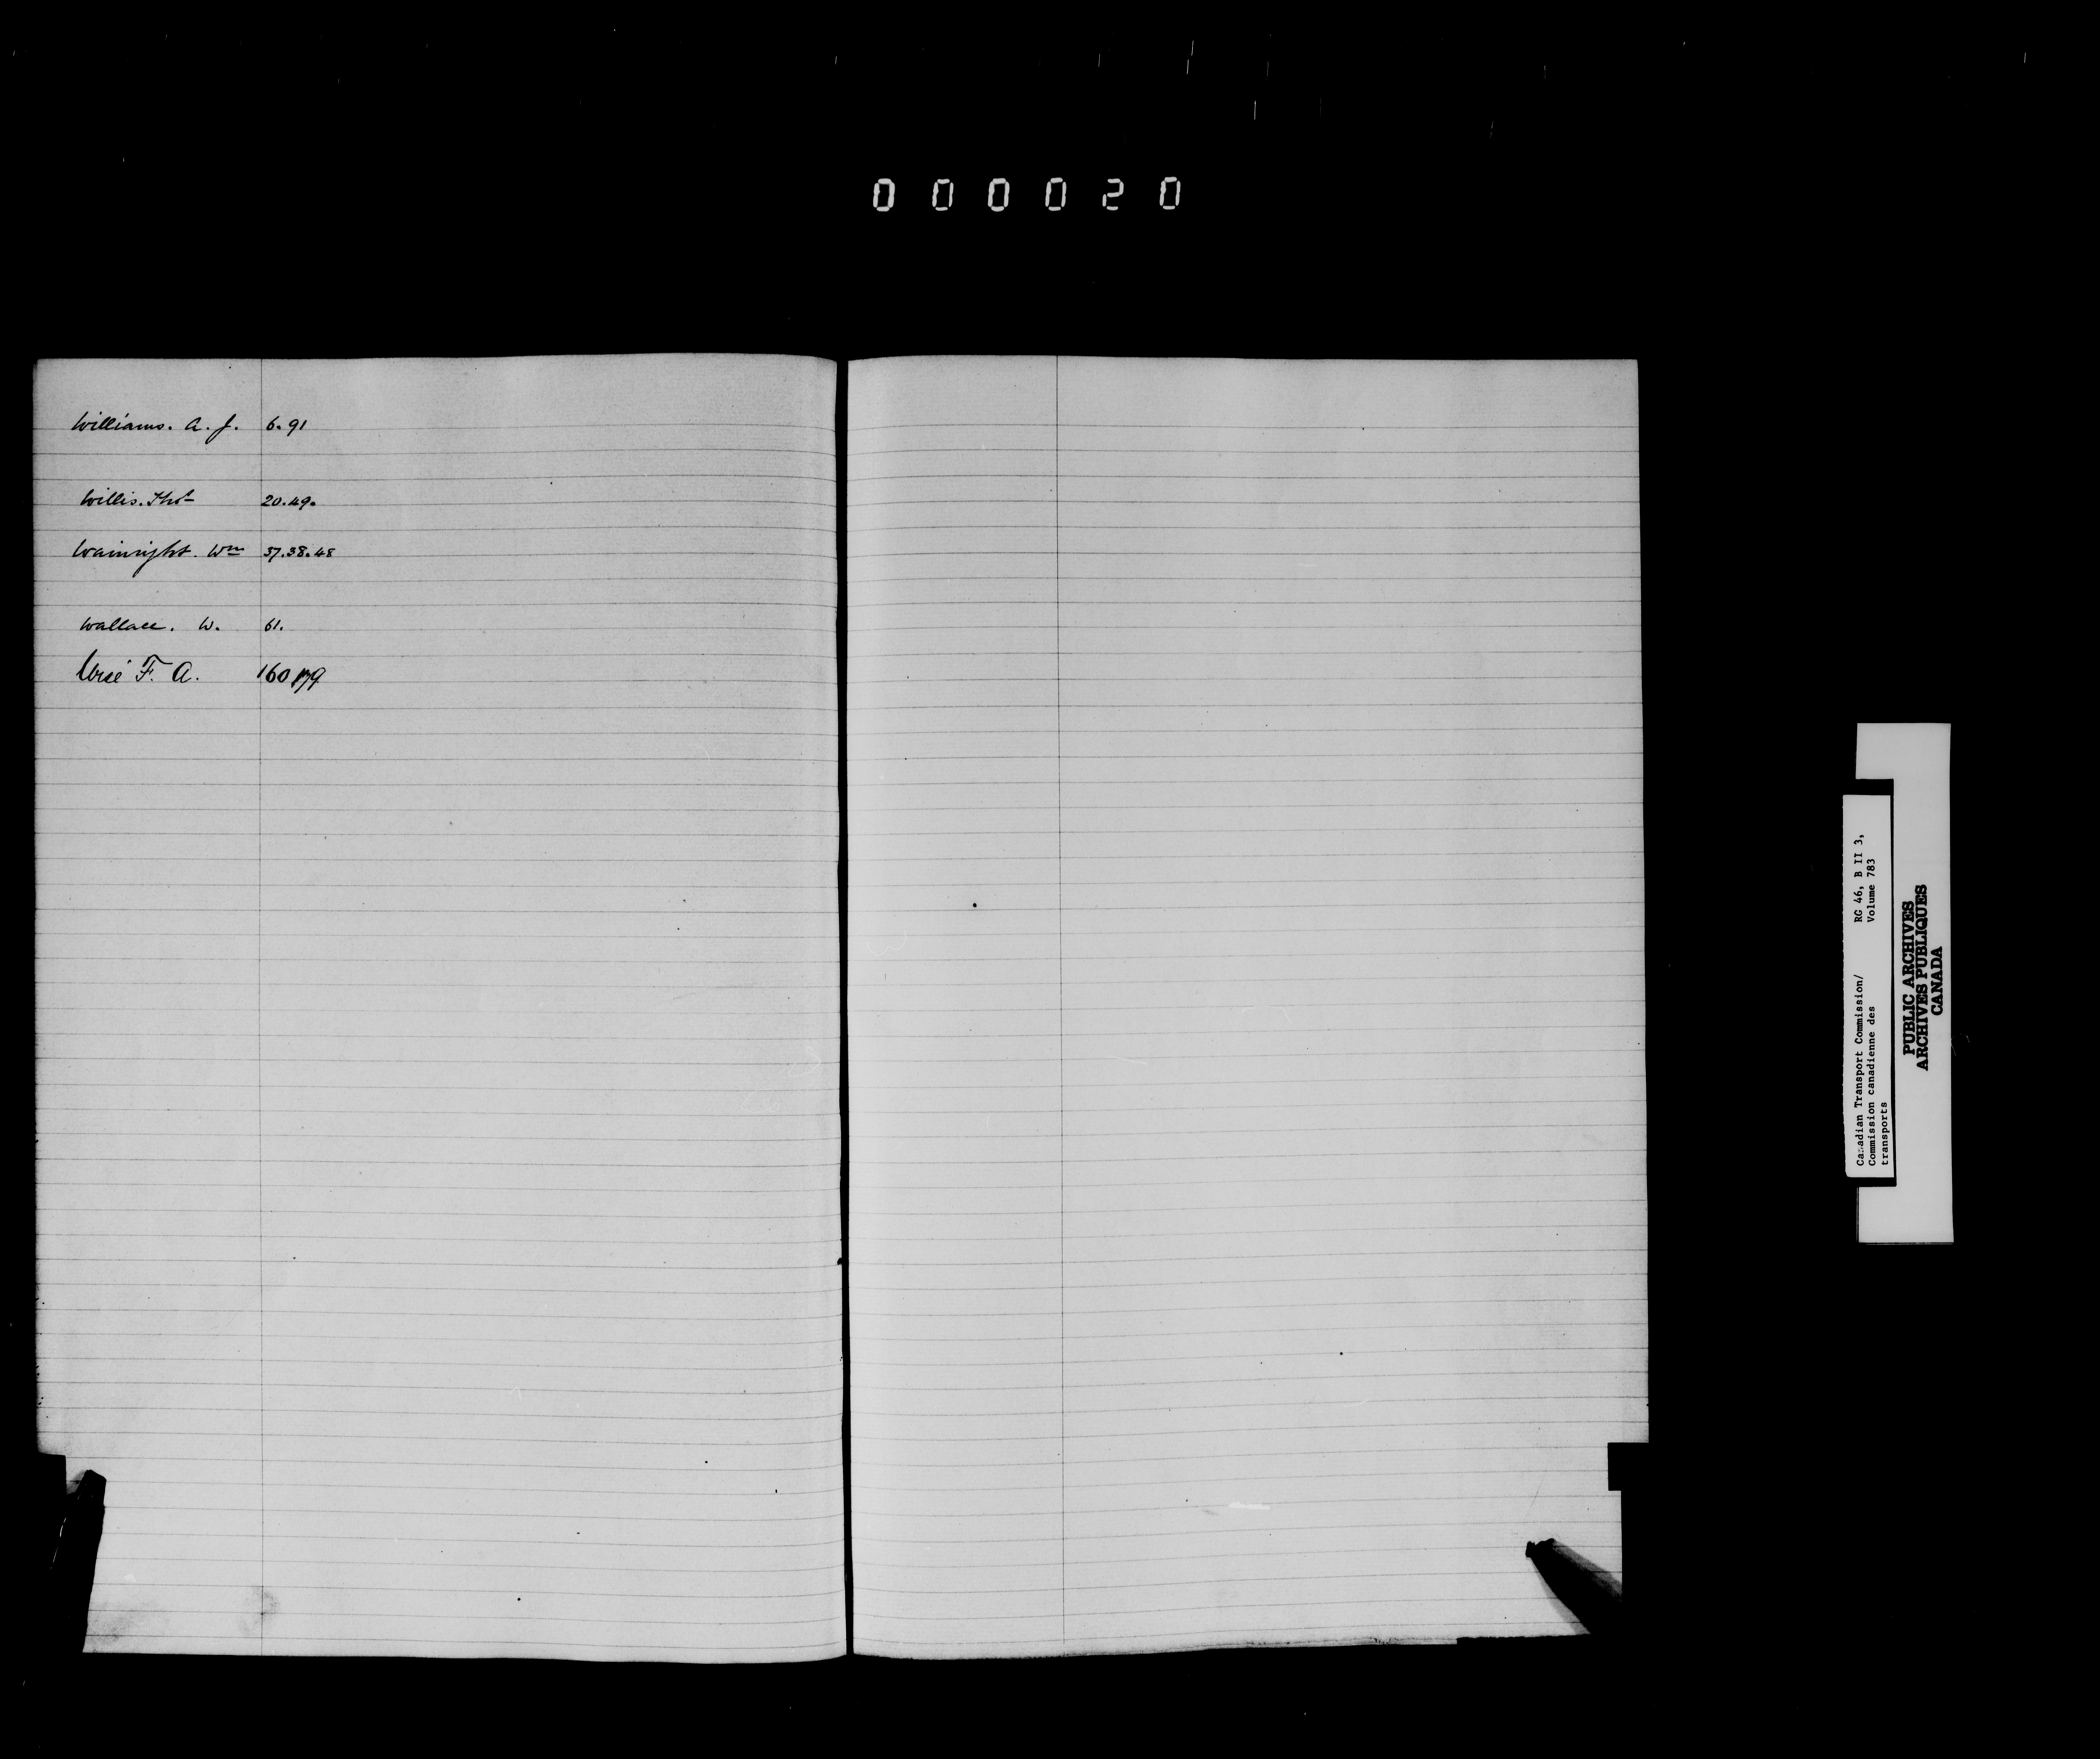 000020
Williams. A. J. 6. 91
Willis. Thos 20. 49.
Wainright. Wm 37. 38. 48
Wallace. W. 61.
Wise F. A. 160 179
Canadian Transport Commission/ RG 46, B II 3,
Commission canadienne des Volume 783
transports
PUBLIC ARCHIVES
ARCHIVES PUBLIQUES
CANADA